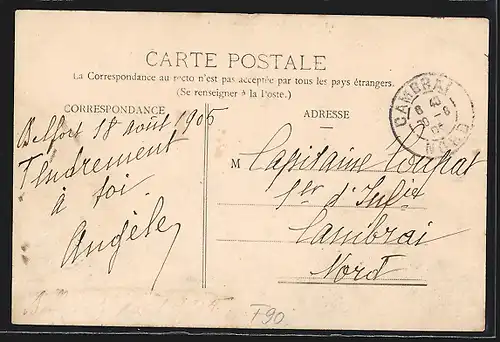 CARTE POSTALE
La Correspondance au recto n'est pas acceptée par tous les pays étrangers.
(Se renseigner à la Poste.)
CORRESPONDANCE
Belfort 18 août 1905
Tendrement
à toi
Angèle
ADRESSE
M Capitaine
d'Inf
Cambrai
Nord
CAMBRAI
NORD
T90